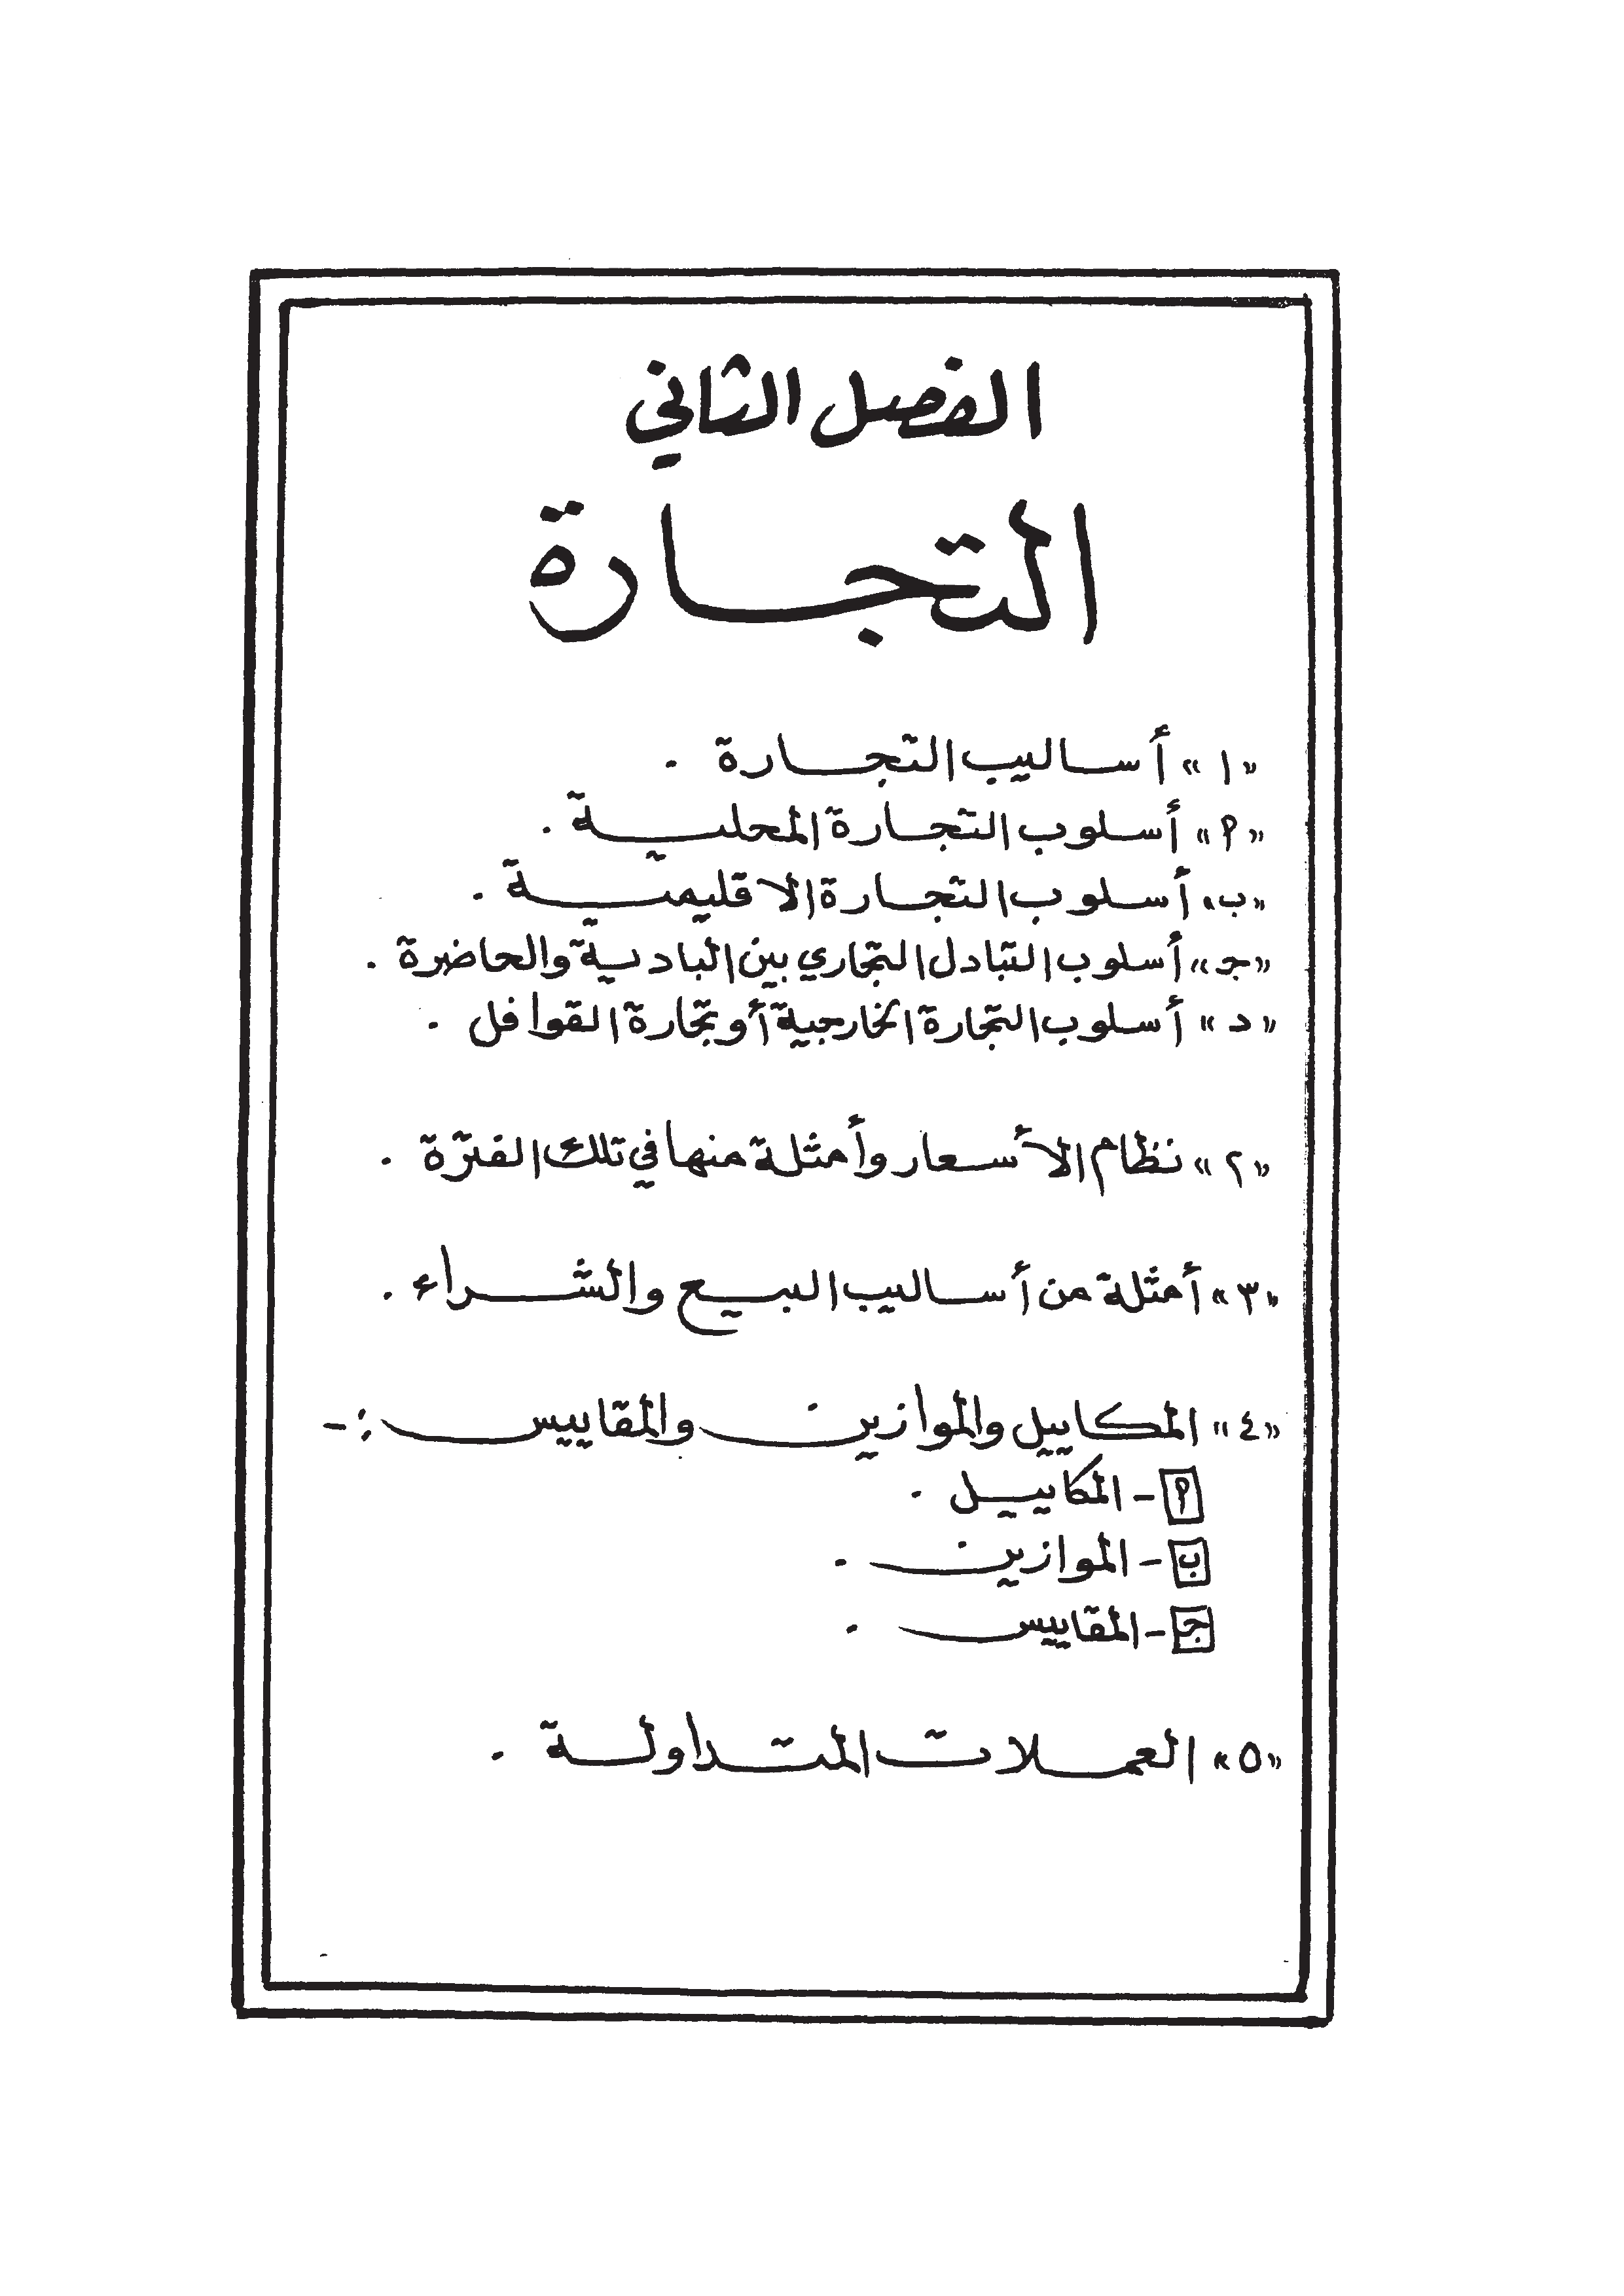 الفصل الثاني
التجارة
«١» أساليب التجارة .
«م» أسلوب التجارة المحلية .
«ب» أسلوب التجارة الاقليمية .
«جـ» أسلوب التبادل التجاري بين البادية والحاضرة .
«د» أسلوب التجارة الخارجية أو تجارة القوافل .
«٢» نظام الأسعار وأمثلة منها في تلك الفترة .
«٣» أمثلة من أساليب البيع والشراء .
«٤» المكاييل والموازين والمقاييس :-
م - المكاييل .
ب - الموازين .
جـ - المقاييس .
«٥» العملات المتداولة .